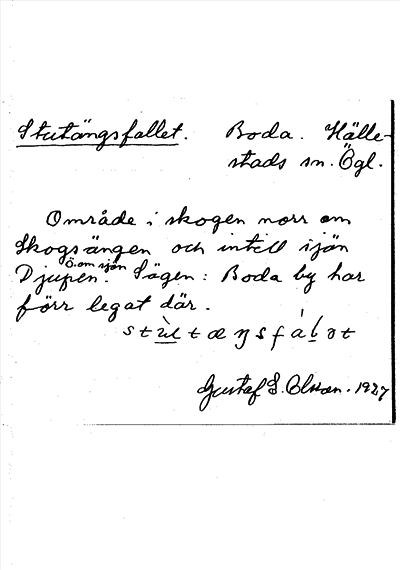 Stutängsfallet. Boda. Hälle-
stads sn. Ögl.
Område i skogen norr om
Skogsängen och intill sjön
Djupen. Ö. om sjön Sägen: Boda by har
förr legat där.
Gustaf S. Olsson. 1927